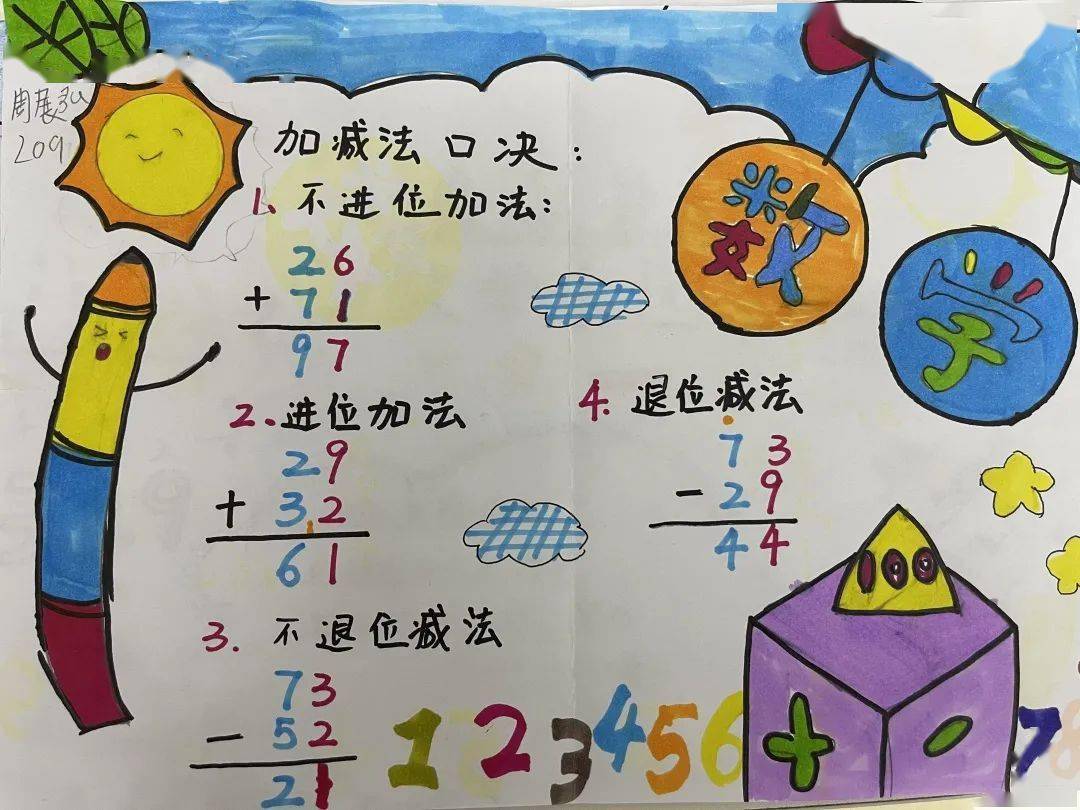 周展弘
209
数学
加减法口决：
1、不进位加法：
26
+ 71
97
2、进位加法
29
+ 32
61
3. 不退位减法
73
- 52
21
4. 退位减法
73
- 29
44
1 2 3 4 5 6 7 8
+ -